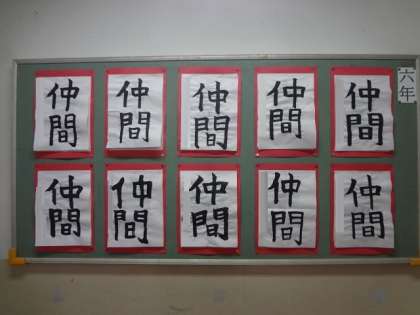 六年
仲間
仲間
仲間
仲間
仲間
仲間
仲間
仲間
仲間
仲間